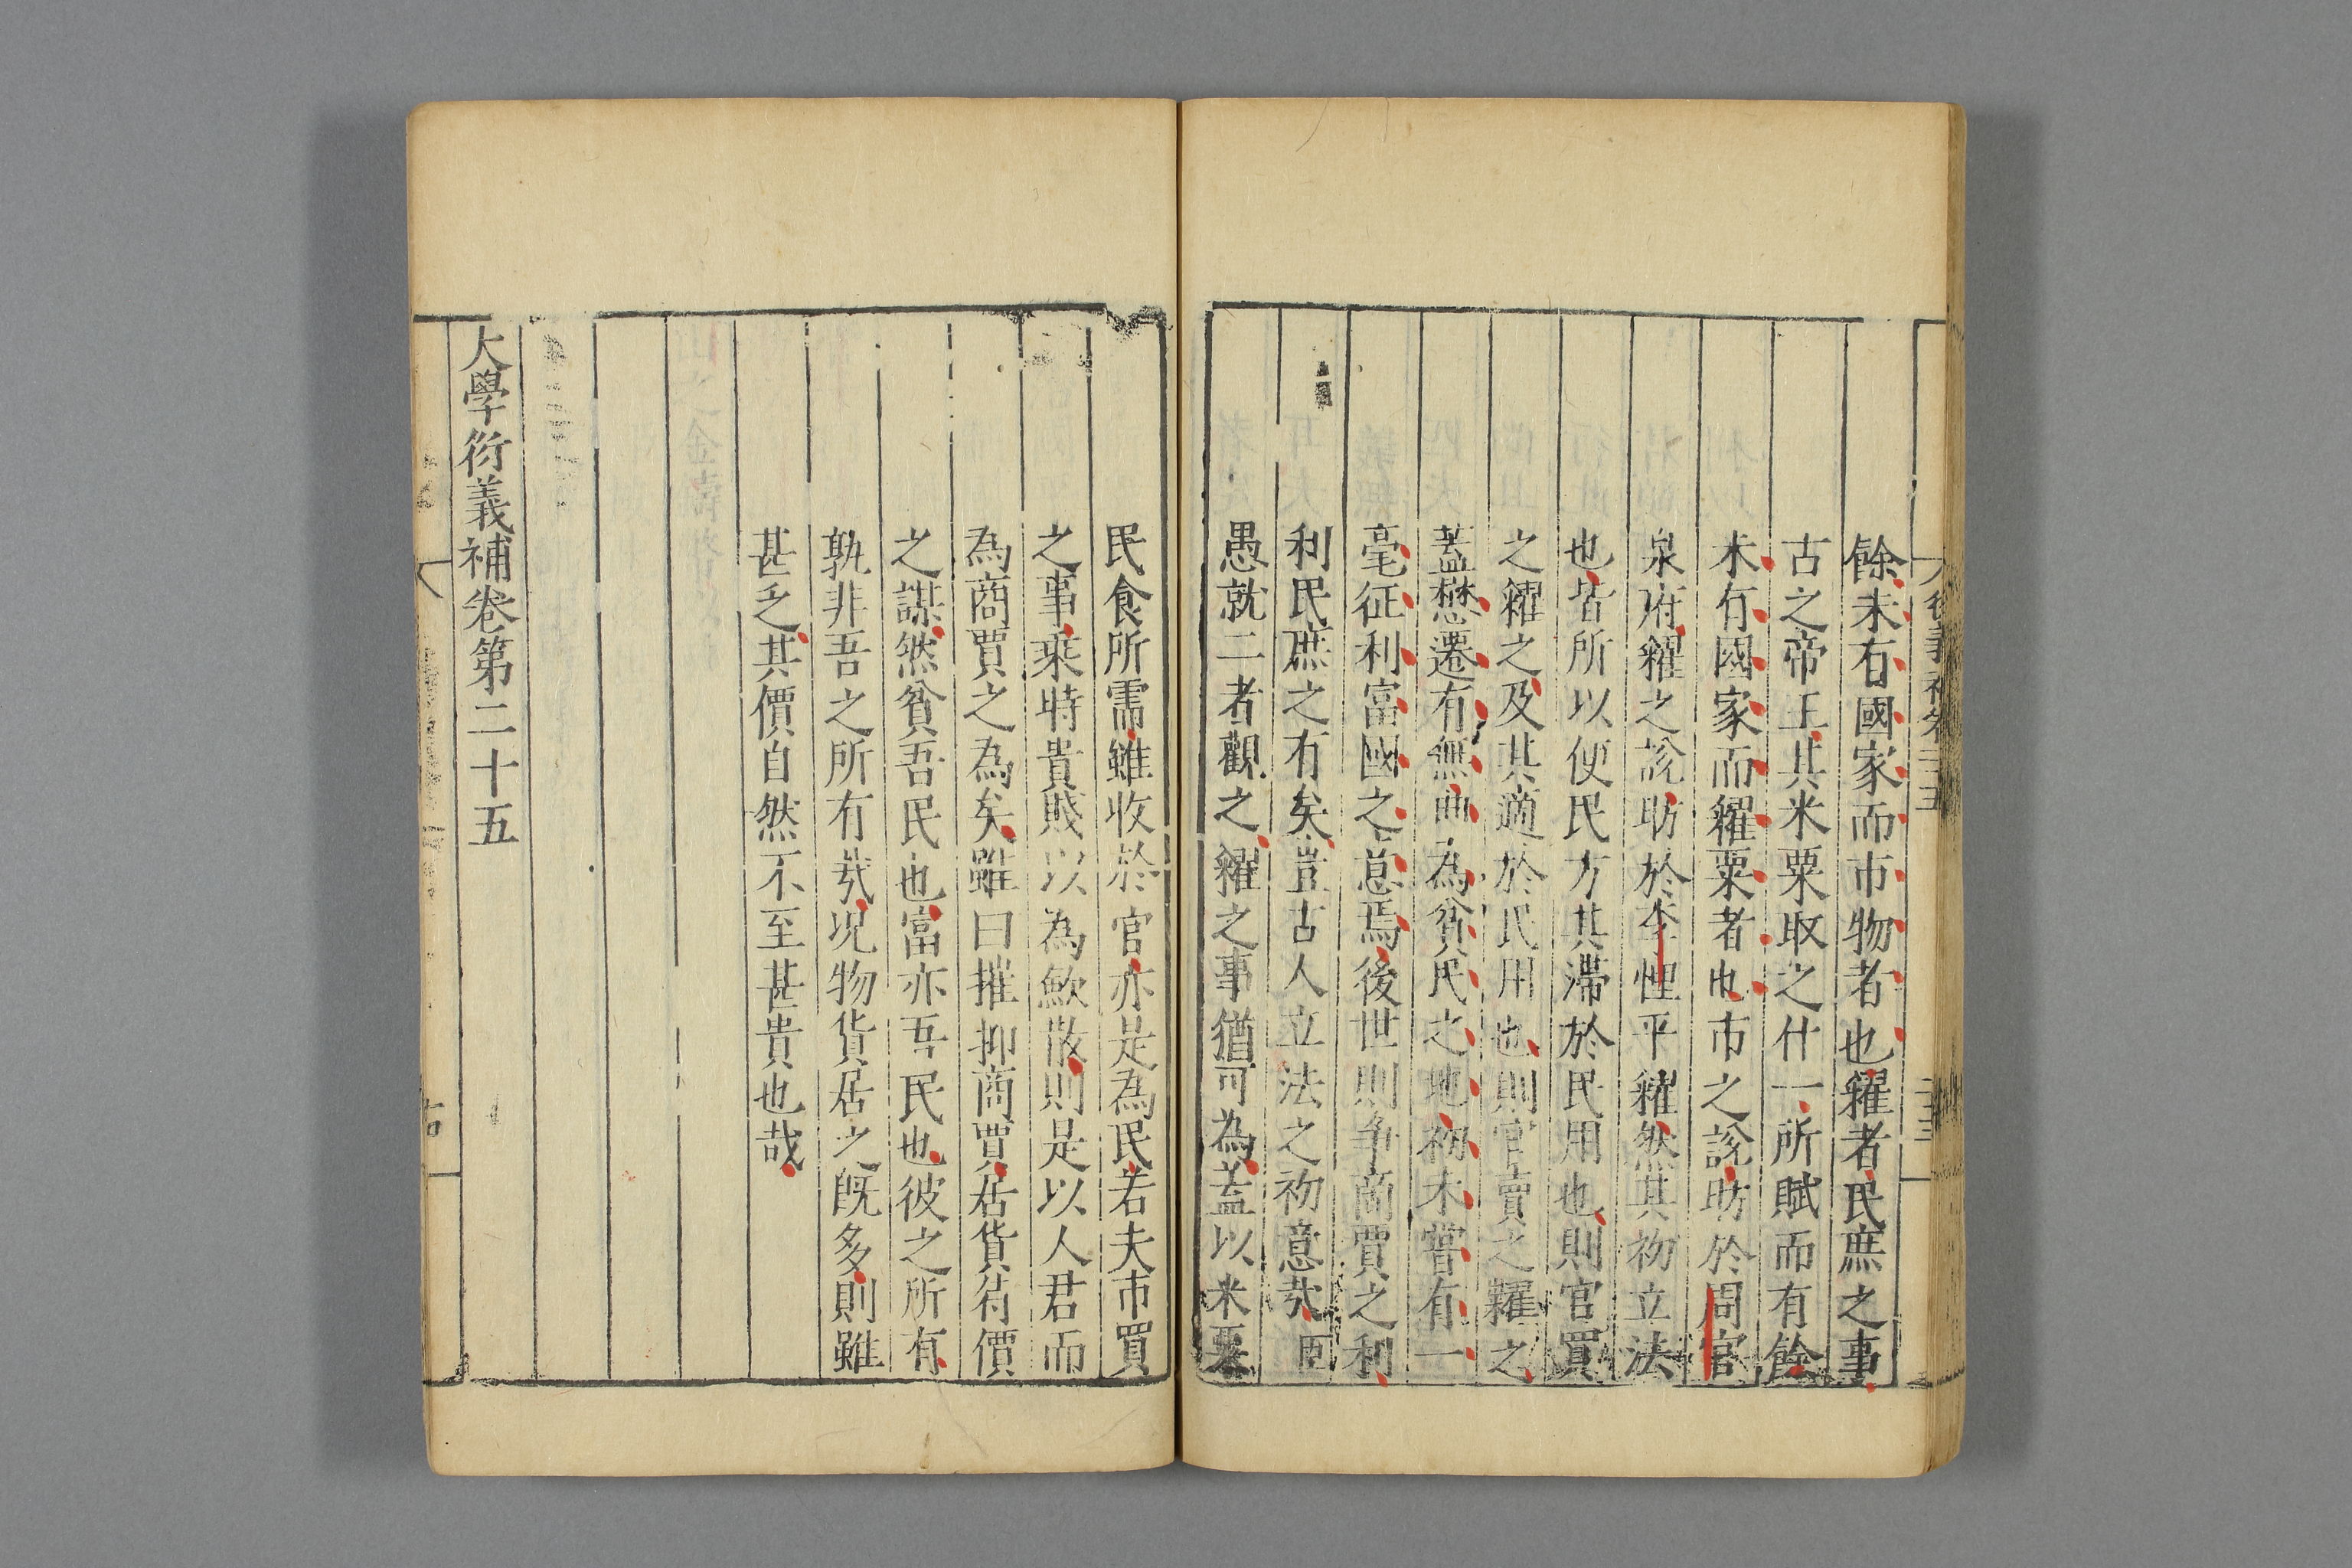 餘未有國家而市物者也糴者民庶之事
古之帝王其米粟取之什一所賦而有餘
未有國家而糴粟者也市之說昉於周官
泉府糴之說昉於李悝平糴然其初立法
也皆所以便民方其滯於民用也則官買
之糴之及其適於民用也則官賣之糶之
蓋懋遷有無曲為貧民之地初未嘗有一
毫征利富國之意焉後世則争商賈之利
利民庶之有矣豈古人立法之初意哉臣
愚就二者觀之糴之事猶可為蓋以米粟
民食所需雖收於官亦是為民若夫市買
之事乘時貴賤以為歛散則是以人君而
為商賈之為矣雖曰摧抑商賈居貨待價
之謀然貧吾民也富亦吾民也彼之所有
孰非吾之所有哉况物貨居之既多則雖
甚乏其價自然不至甚貴也哉
大學衍義補卷第二十五